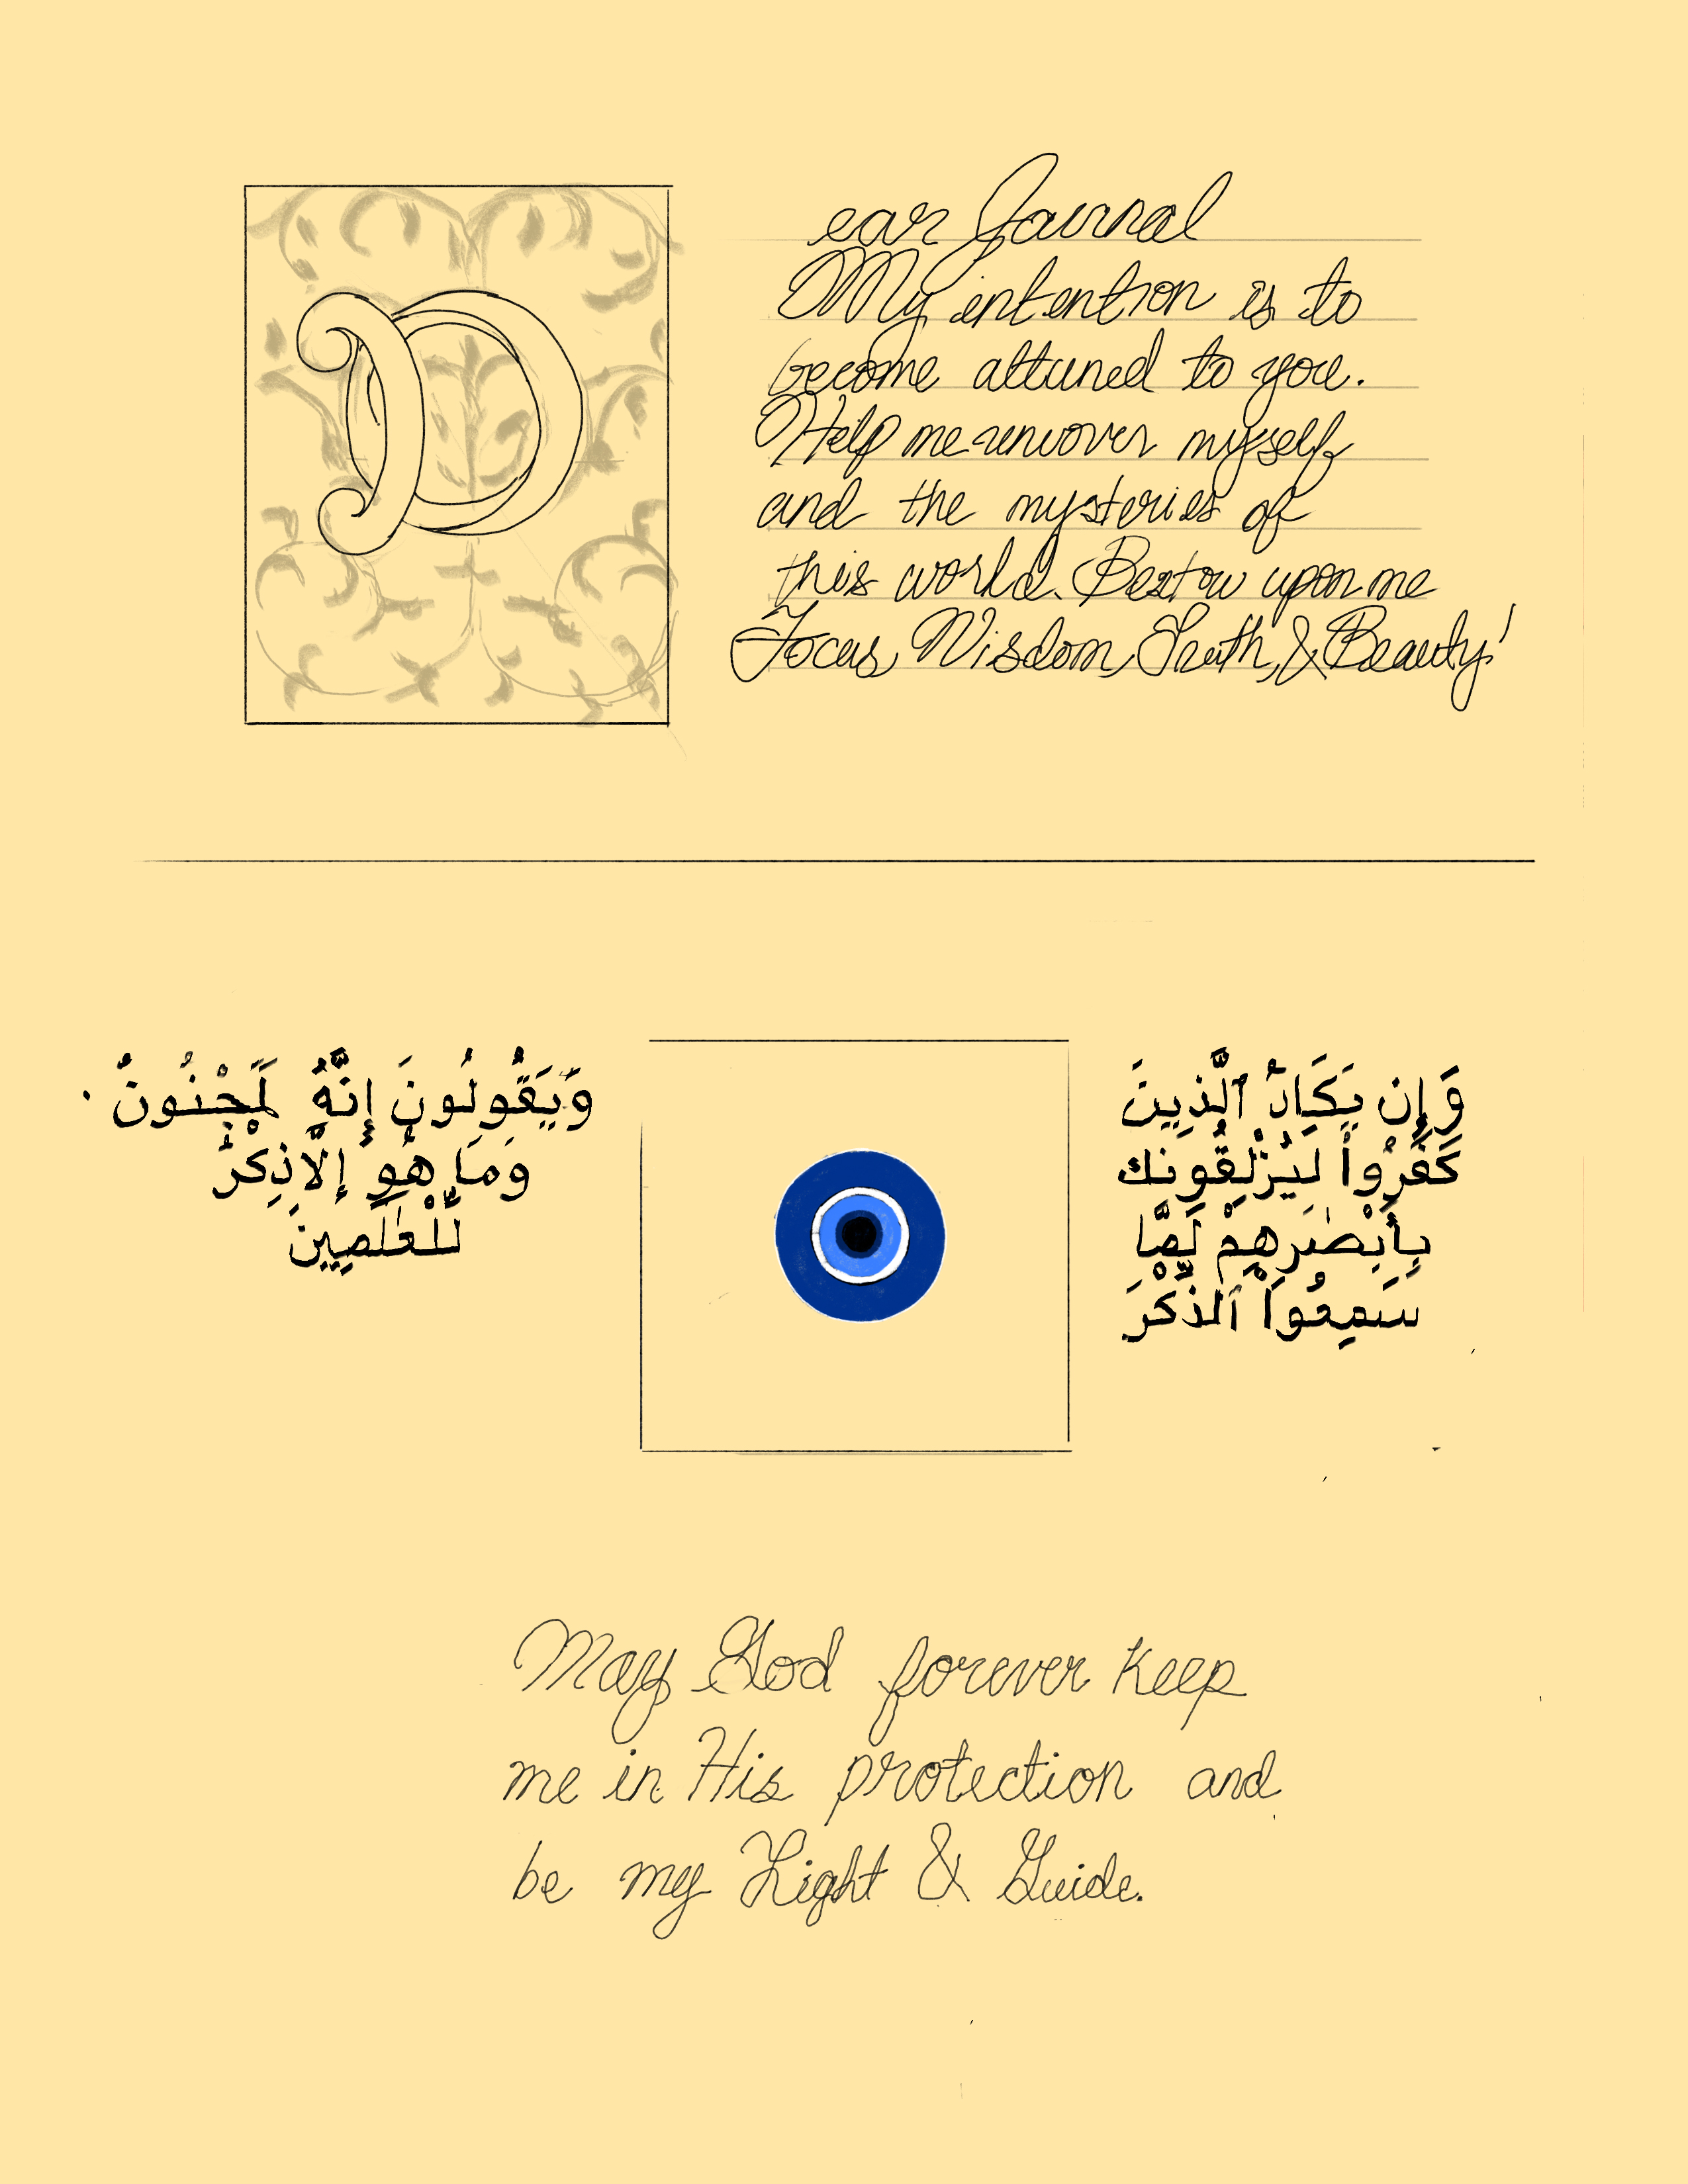 Dear Journal
My intention is to
become attuned to you.
Help me uncover myself
and the mysteries of
this world. Bestow upon me
Focus, Wisdom, Truth, & Beauty!
وَإِن يَكَادُ ٱلَّذِينَ
كَفَرُوا۟ لَيُزْلِقُونَك
بِأَبْصَٰرِهِمْ لَمَّا
سَمِعُوا۟ ٱلذِّكْرَ
وَيَقُولُونَ إِنَّهُۥ لَمَجْنُونٌ .
وَمَا هُوَ إِلَّا ذِكْرٌ
لِّلْعَٰلَمِينَ
May God forever keep
me in His protection and
be my Light & Guide.